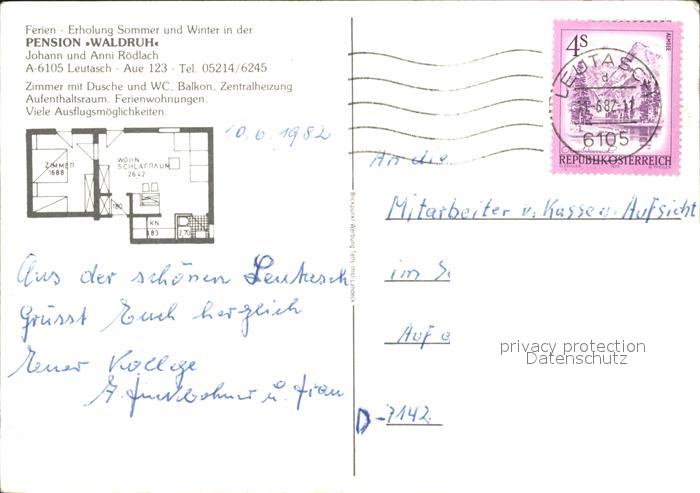 Ferien - Erholung Sommer und Winter in der
PENSION »WALDRUH«
Johann und Anni Rödlach
A-6105 Leutasch - Aue 123 - Tel. 05214/6245
Zimmer mit Dusche und WC, Balkon, Zentralheizung
Aufenthaltsraum. Ferienwohnungen.
Viele Ausflugsmöglichkeiten.
ZIMMER
1688
WOHN
SCHLAFRAUM
2642
180
KN
183
170
10.6.1982
Aus der schönen Leutasch
Grüsst Euch herzlich
Euer Kollege
u. Frau
4S
ALMSEE
REPUBLIK ÖSTERREICH
LEUTASCH
a
6105
An die
Mitarbeiter v. Kassen-Aufsicht
im S
Auf
D-7142
privacy protection
Datenschutz